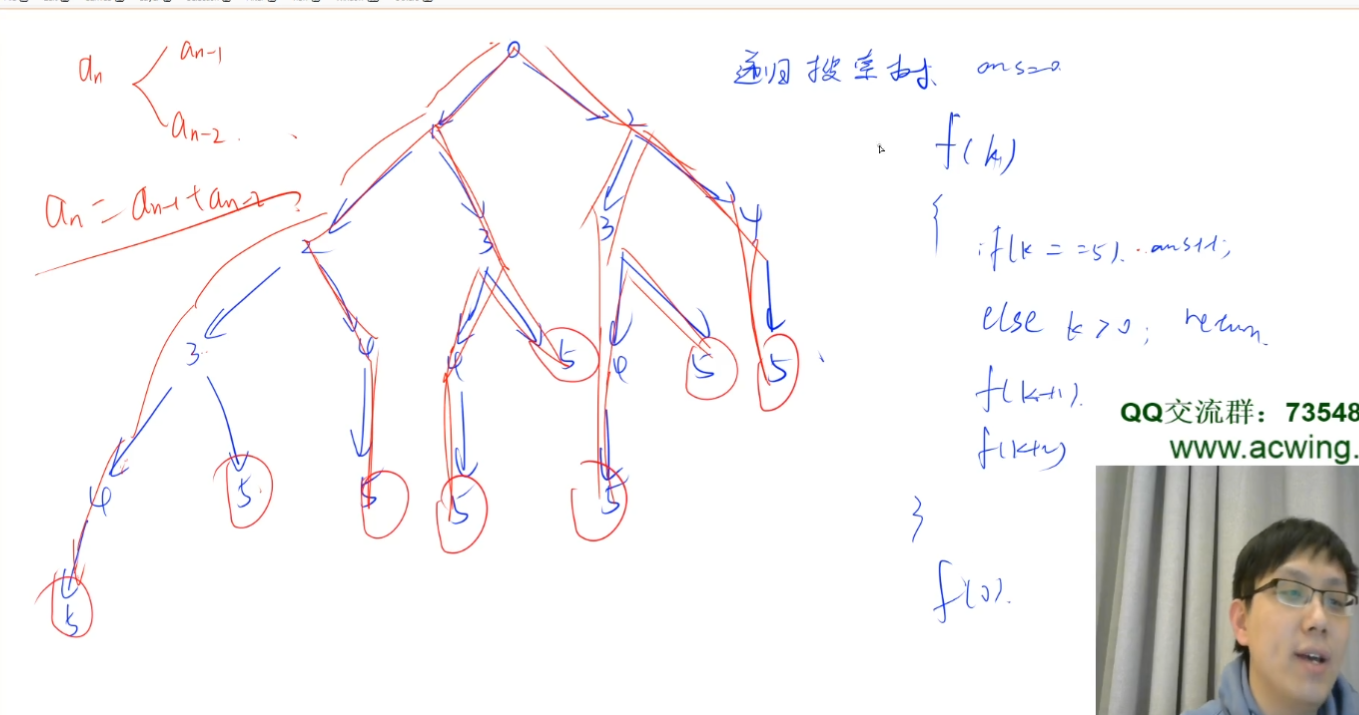 aₙ
aₙ₋₁
aₙ₋₂
aₙ = aₙ₋₁ + aₙ₋₂ ?
0
1 2
2 3 3 4
3 4 4 5 4 5 5
4 5 5 5 5
5
递归搜索树 ans=0
f(k)
{
if(k==5) ans++;
else k>0; return
f(k+1).
f(k+2)
}
f(0).
QQ交流群：73548
www.acwing.